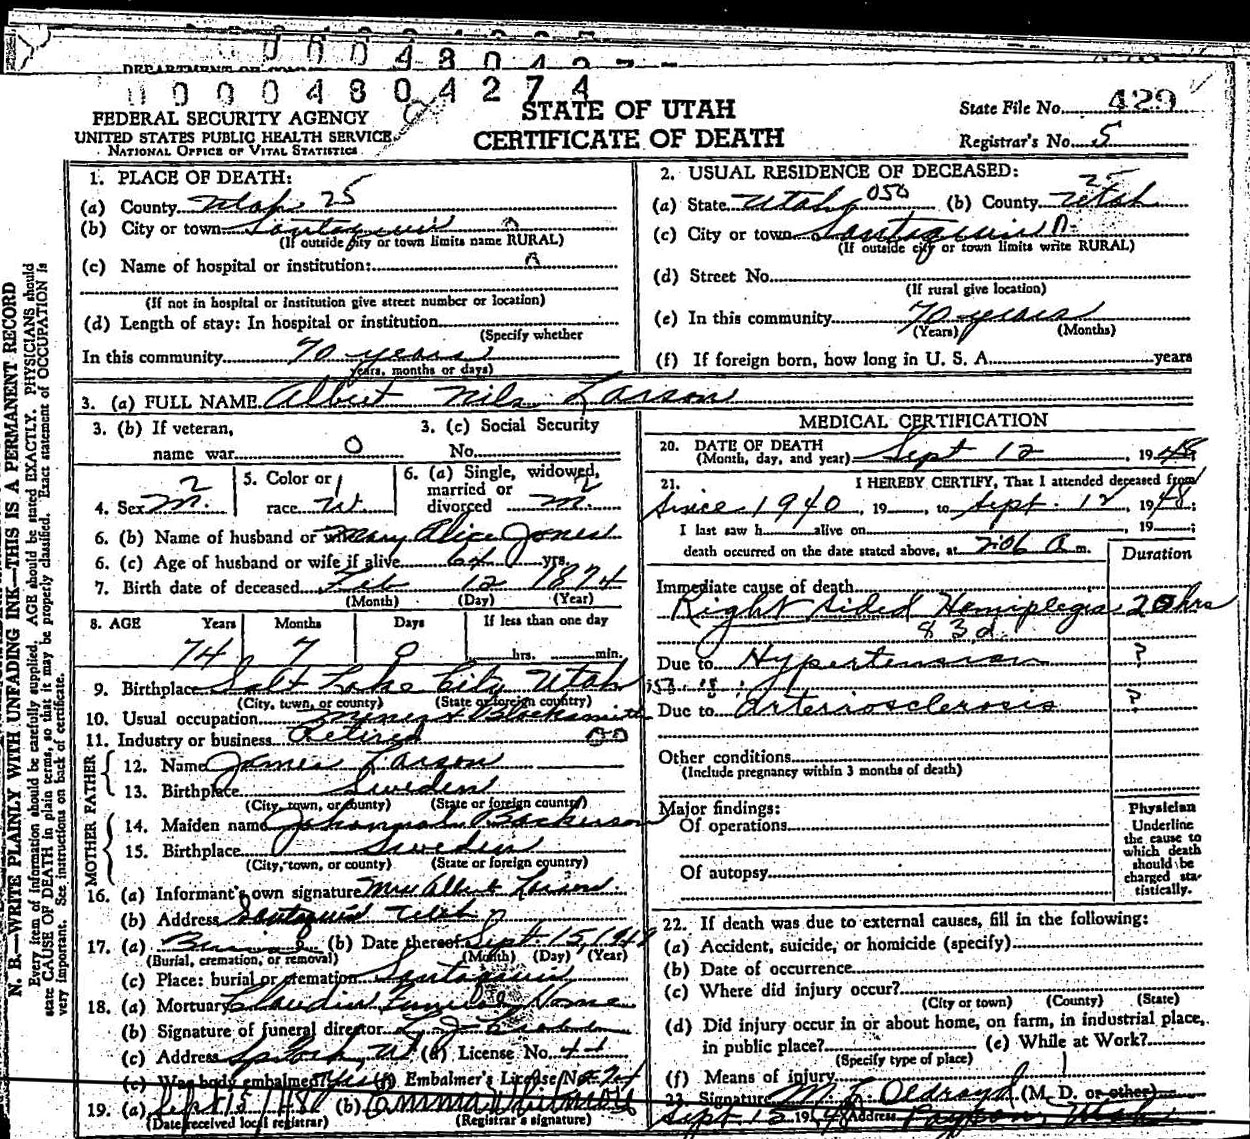 0000480427
DEPARTMENT OF
00004804274
FEDERAL SECURITY AGENCY
UNITED STATES PUBLIC HEALTH SERVICE
NATIONAL OFFICE OF VITAL STATISTICS
STATE OF UTAH
CERTIFICATE OF DEATH
State File No. 429
Registrar's No. 5
N. B.—WRITE PLAINLY WITH UNFADING INK—THIS IS A PERMANENT RECORD
Every item of information should be carefully supplied. AGE should be stated EXACTLY. PHYSICIANS should
state CAUSE OF DEATH in plain terms, so that it may be properly classified. Exact statement of OCCUPATION is
very important. See instructions on back of certificate.
1. PLACE OF DEATH:
(a) County Utah 25
(b) City or town Santaquin
(If outside city or town limits name RURAL)
(c) Name of hospital or institution:
(If not in hospital or institution give street number or location)
(d) Length of stay: In hospital or institution
(Specify whether
In this community 70 years
years, months or days)
2. USUAL RESIDENCE OF DECEASED:
(a) State Utah 050 (b) County Utah 25
(c) City or town Santaquin
(If outside city or town limits write RURAL)
(d) Street No.
(If rural give location)
(e) In this community 70 years
(Years) (Months)
(f) If foreign born, how long in U. S. A. years
3. (a) FULL NAME Albert Nils Larson
3. (b) If veteran,
name war 0
3. (c) Social Security
No.
4. Sex M. 2
5. Color or
race W 1
6. (a) Single, widowed,
married or
divorced M. 2
6. (b) Name of husband or wife Mary Alice Jones
6. (c) Age of husband or wife if alive 64 yrs.
7. Birth date of deceased Feb 12 1874
(Month) (Day) (Year)
8. AGE Years Months Days If less than one day
74 7 0 hrs. min.
9. Birthplace Salt Lake City Utah
(City, town, or county) (State or foreign country)
10. Usual occupation & Blacksmith
11. Industry or business Retired
FATHER
12. Name James Larson
13. Birthplace Sweden
(City, town, or county) (State or foreign country)
MOTHER
14. Maiden name Johannah
15. Birthplace Sweden
(City, town, or county) (State or foreign country)
16. (a) Informant's own signature Mrs Albert Larson
(b) Address Santaquin Utah
17. (a) Burial (b) Date thereof Sept. 15, 1948
(Burial, cremation, or removal) (Month) (Day) (Year)
(c) Place: burial or cremation Santaquin
18. (a) Mortuary Claudin Funeral Home
(b) Signature of funeral director
(c) Address Ut (d) License No. 44
(e) Was body embalmed? Yes (f) Embalmer's License No. 74
19. (a) Sept 15 / 48 (b) Emma
(Date received local registrar) (Registrar's signature)
MEDICAL CERTIFICATION
20. DATE OF DEATH
(Month, day, and year) Sept 12, 1948
21. I HEREBY CERTIFY, That I attended deceased from
since 1940, 19 , to Sept. 12, 1948;
I last saw h alive on , 19 ;
death occurred on the date stated above, at 2:06 A m.
Duration
Immediate cause of death
Right sided Hemiplegia 20 hrs
83d
Due to Hypertension ?
Due to Arteriosclerosis ?
Other conditions
(Include pregnancy within 3 months of death)
Major findings:
Of operations
Of autopsy
Physician
Underline
the cause to
which death
should be
charged sta-
tistically.
22. If death was due to external causes, fill in the following:
(a) Accident, suicide, or homicide (specify)
(b) Date of occurrence
(c) Where did injury occur?
(City or town) (County) (State)
(d) Did injury occur in or about home, on farm, in industrial place,
in public place? (e) While at Work?
(Specify type of place)
(f) Means of injury
23. Signature M L Oldroyd (M. D. or other)
Sept 13 1948 Address Payson, Utah